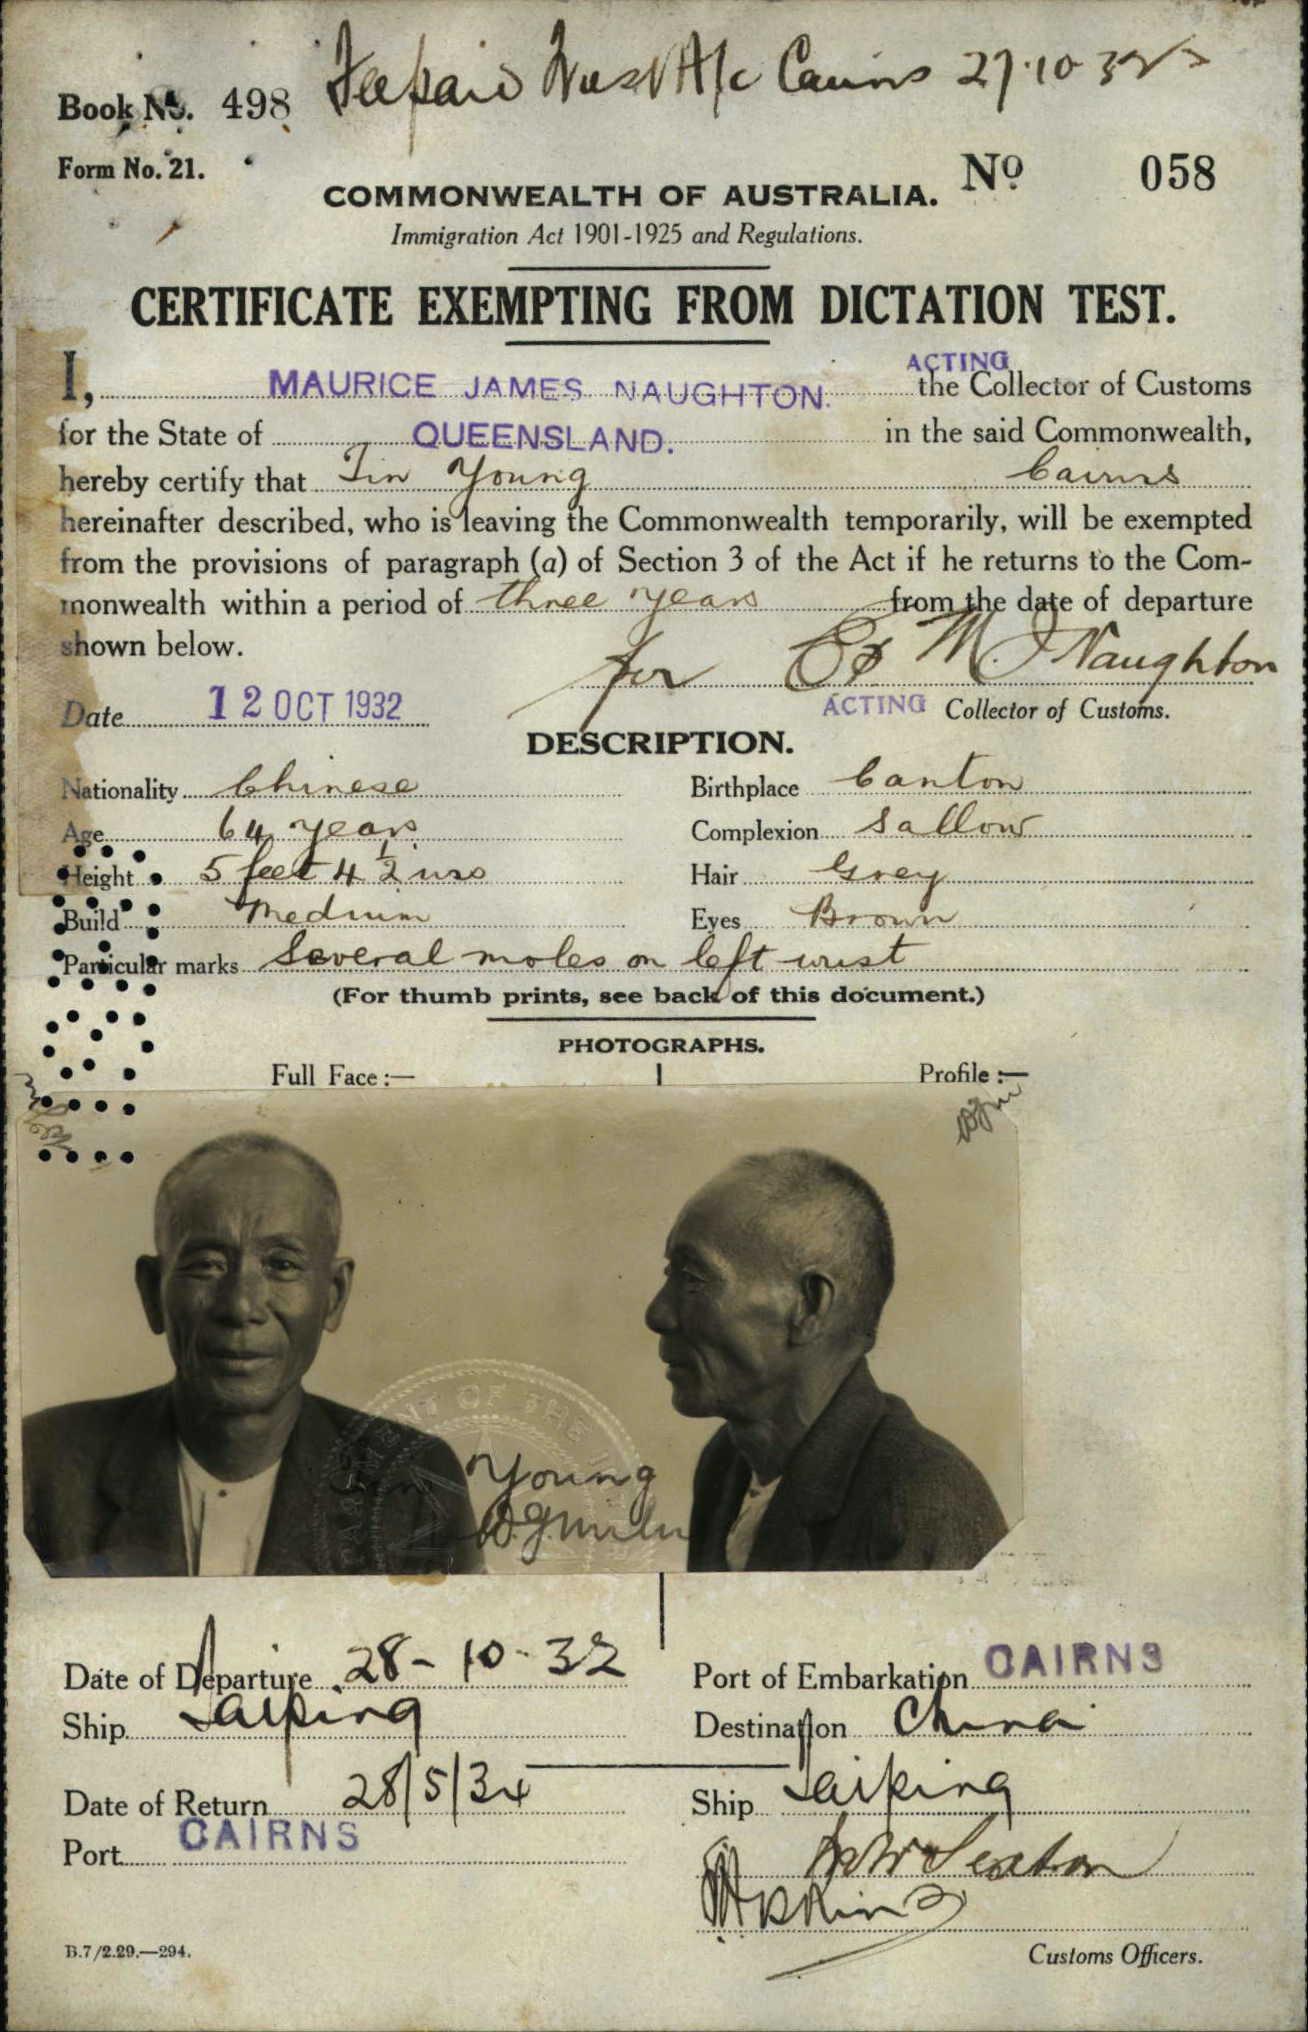 Book No. 498 Feepaid Trust A/c Cairns 27.10.32
Form No. 21.
No 058
COMMONWEALTH OF AUSTRALIA.
Immigration Act 1901-1925 and Regulations.
CERTIFICATE EXEMPTING FROM DICTATION TEST.
ACTING
I, MAURICE JAMES NAUGHTON. the Collector of Customs
for the State of QUEENSLAND. in the said Commonwealth,
hereby certify that Tin Young Cairns
hereinafter described, who is leaving the Commonwealth temporarily, will be exempted
from the provisions of paragraph (a) of Section 3 of the Act if he returns to the Com-
monwealth within a period of three years from the date of departure
shown below.
for M. J Naughton
Date 12 OCT 1932 ACTING Collector of Customs.
DESCRIPTION.
Nationality Chinese Birthplace Canton
Age 64 years Complexion Sallow
Height 5 feet 4 1/2 ins Hair Grey
Build Medium Eyes Brown
Particular marks Several moles on left wrist
(For thumb prints, see back of this document.)
PHOTOGRAPHS.
Full Face :— Profile :—
OF THE
Tin Young
Date of Departure 28-10-32 Port of Embarkation CAIRNS
Ship Taiping Destination China
Date of Return 28/5/34 Ship Taiping
Port CAIRNS
Sexton
Customs Officers.
B.7/2.29.—294.